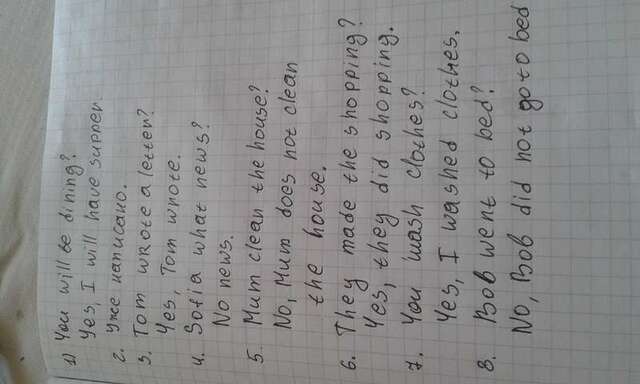 1) You will be dining?
Yes, I will have supper.
2. Уже написано.
3. Tom wrote a letter?
Yes, Tom wrote.
4. Sofia what news?
No news.
5. Mum clean the house?
No, Mum does not clean
the house.
6. They made the shopping?
Yes, they did shopping.
7. You wash clothes?
Yes, I washed clothes.
8. Bob went to bed?
No, Bob did not go to bed